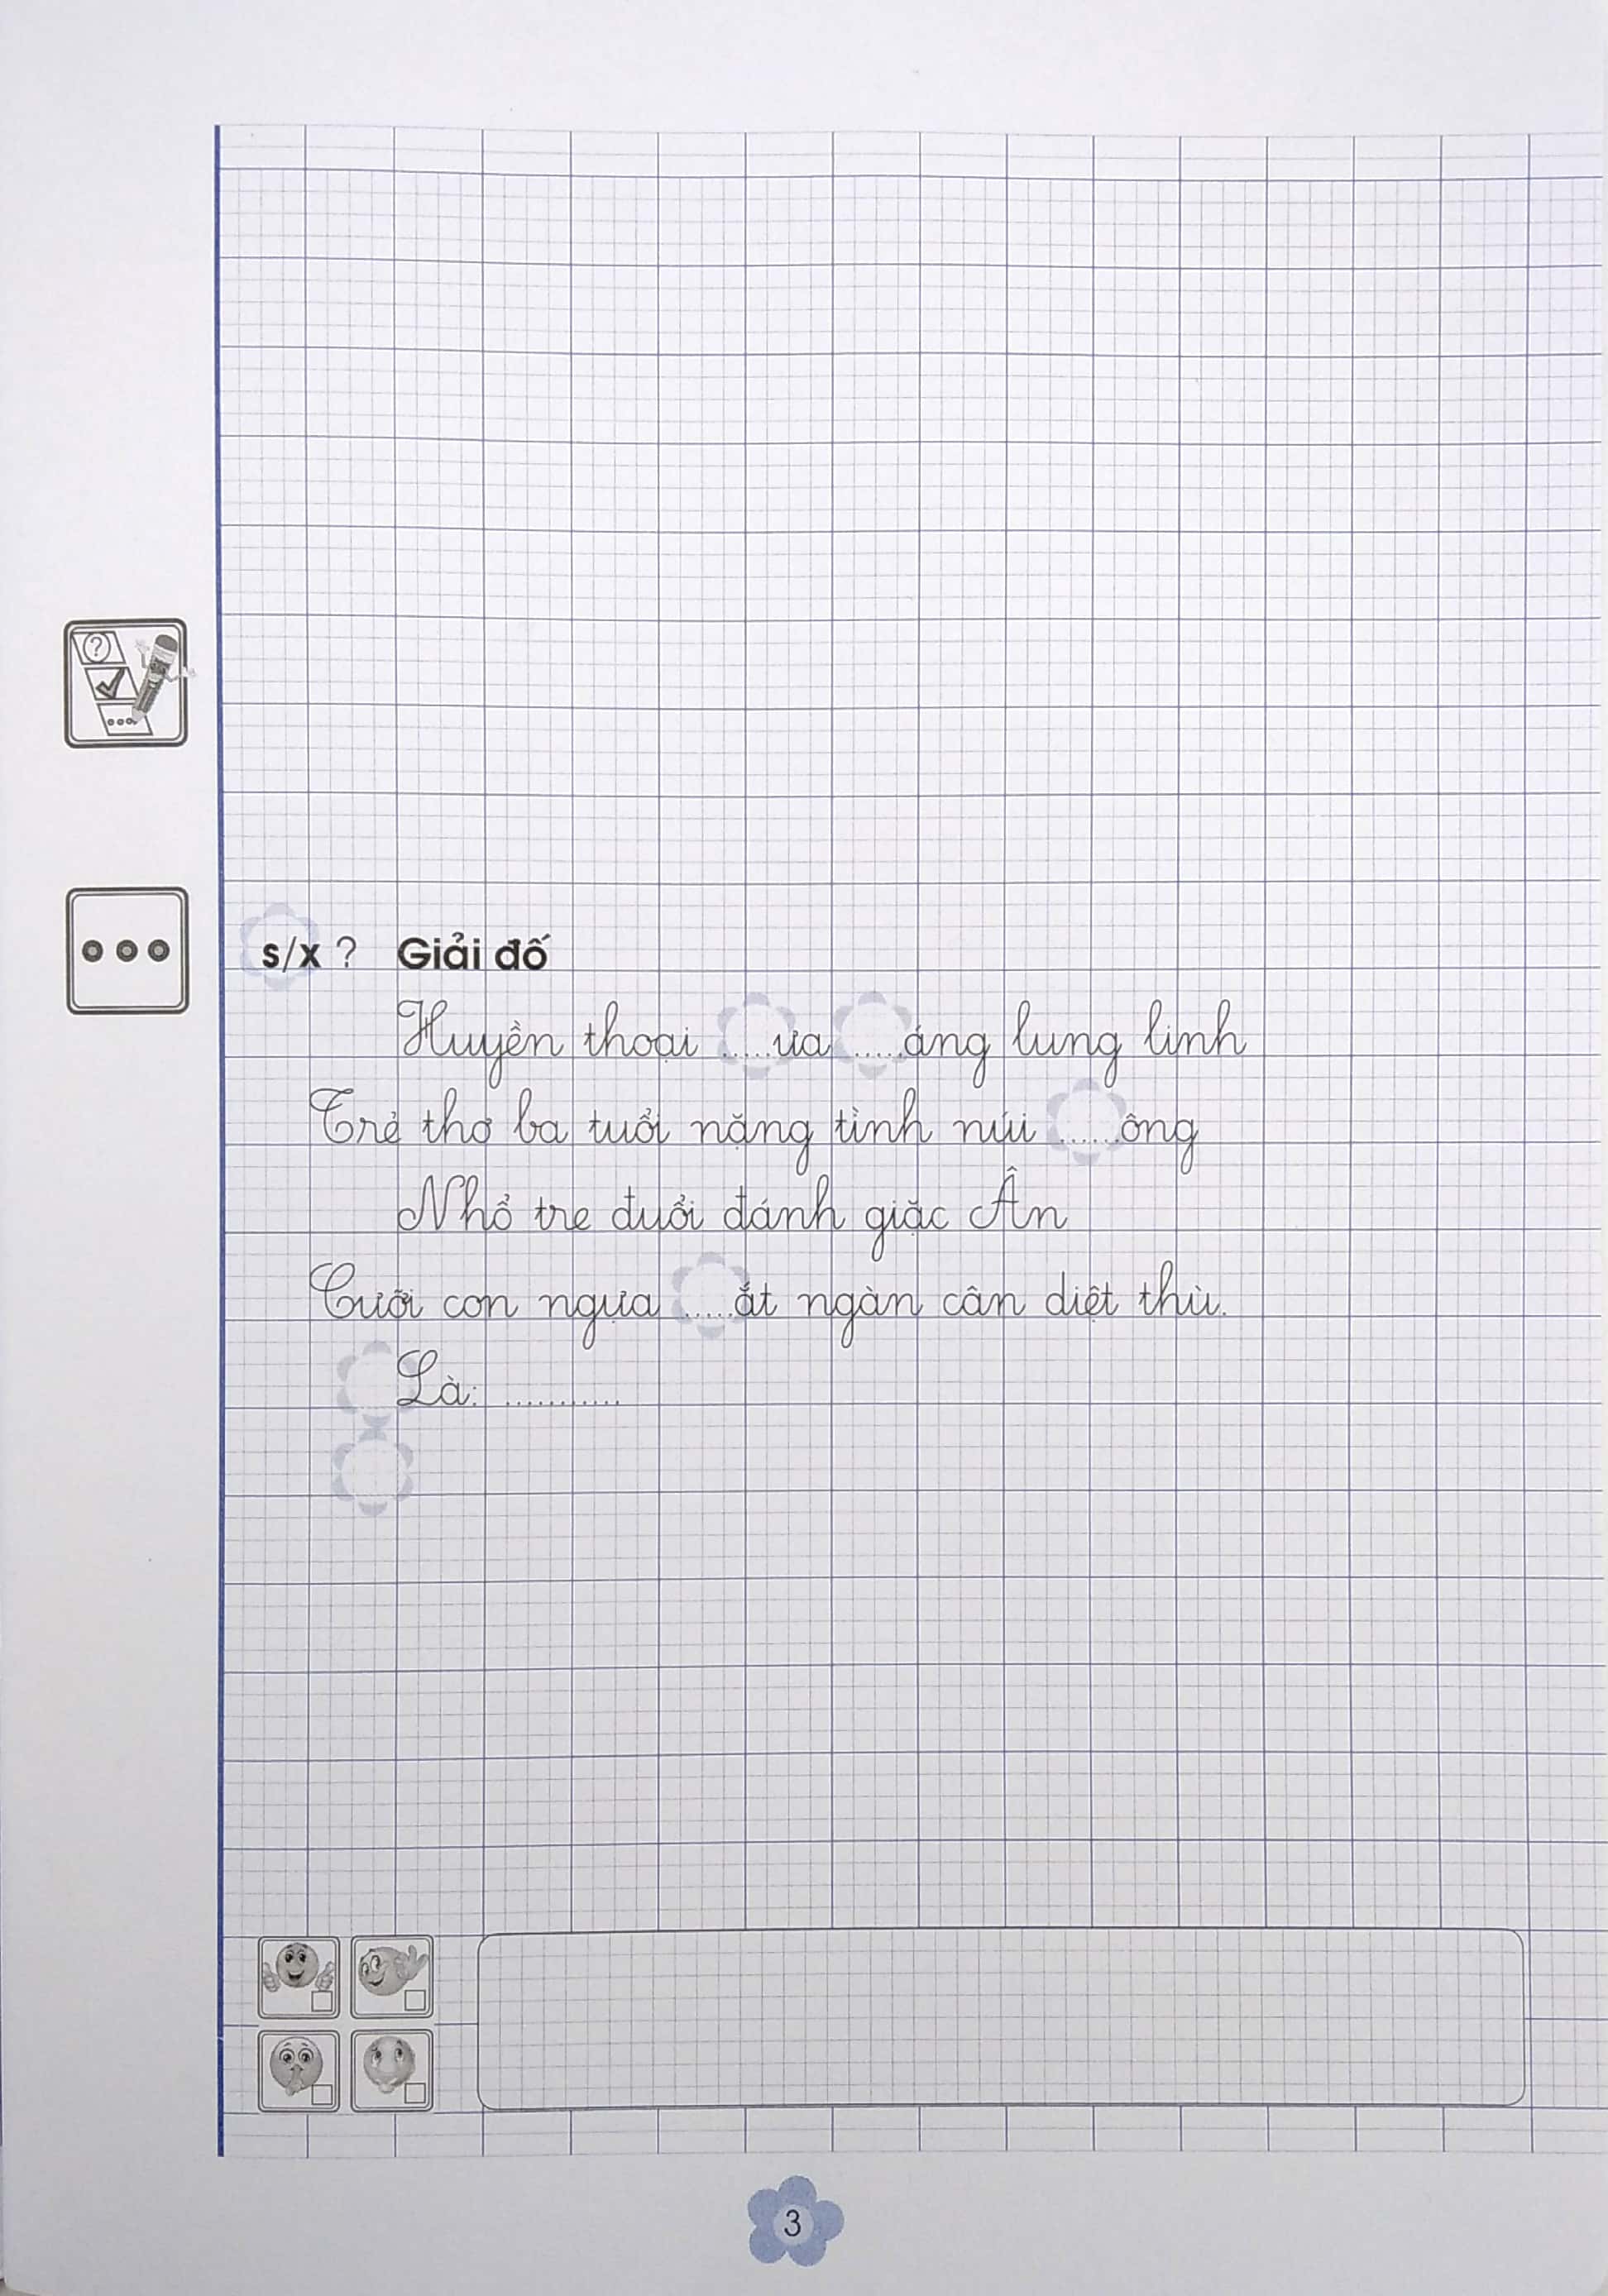 s/x ? Giải đố
Huyền thoại .....ưa .....áng lung linh
Trẻ thơ ba tuổi nặng tình núi ......ông
Nhổ tre đuổi đánh giặc Ân
Cưỡi con ngựa .....ắt ngàn cân diệt thù.
Là: ...........
3